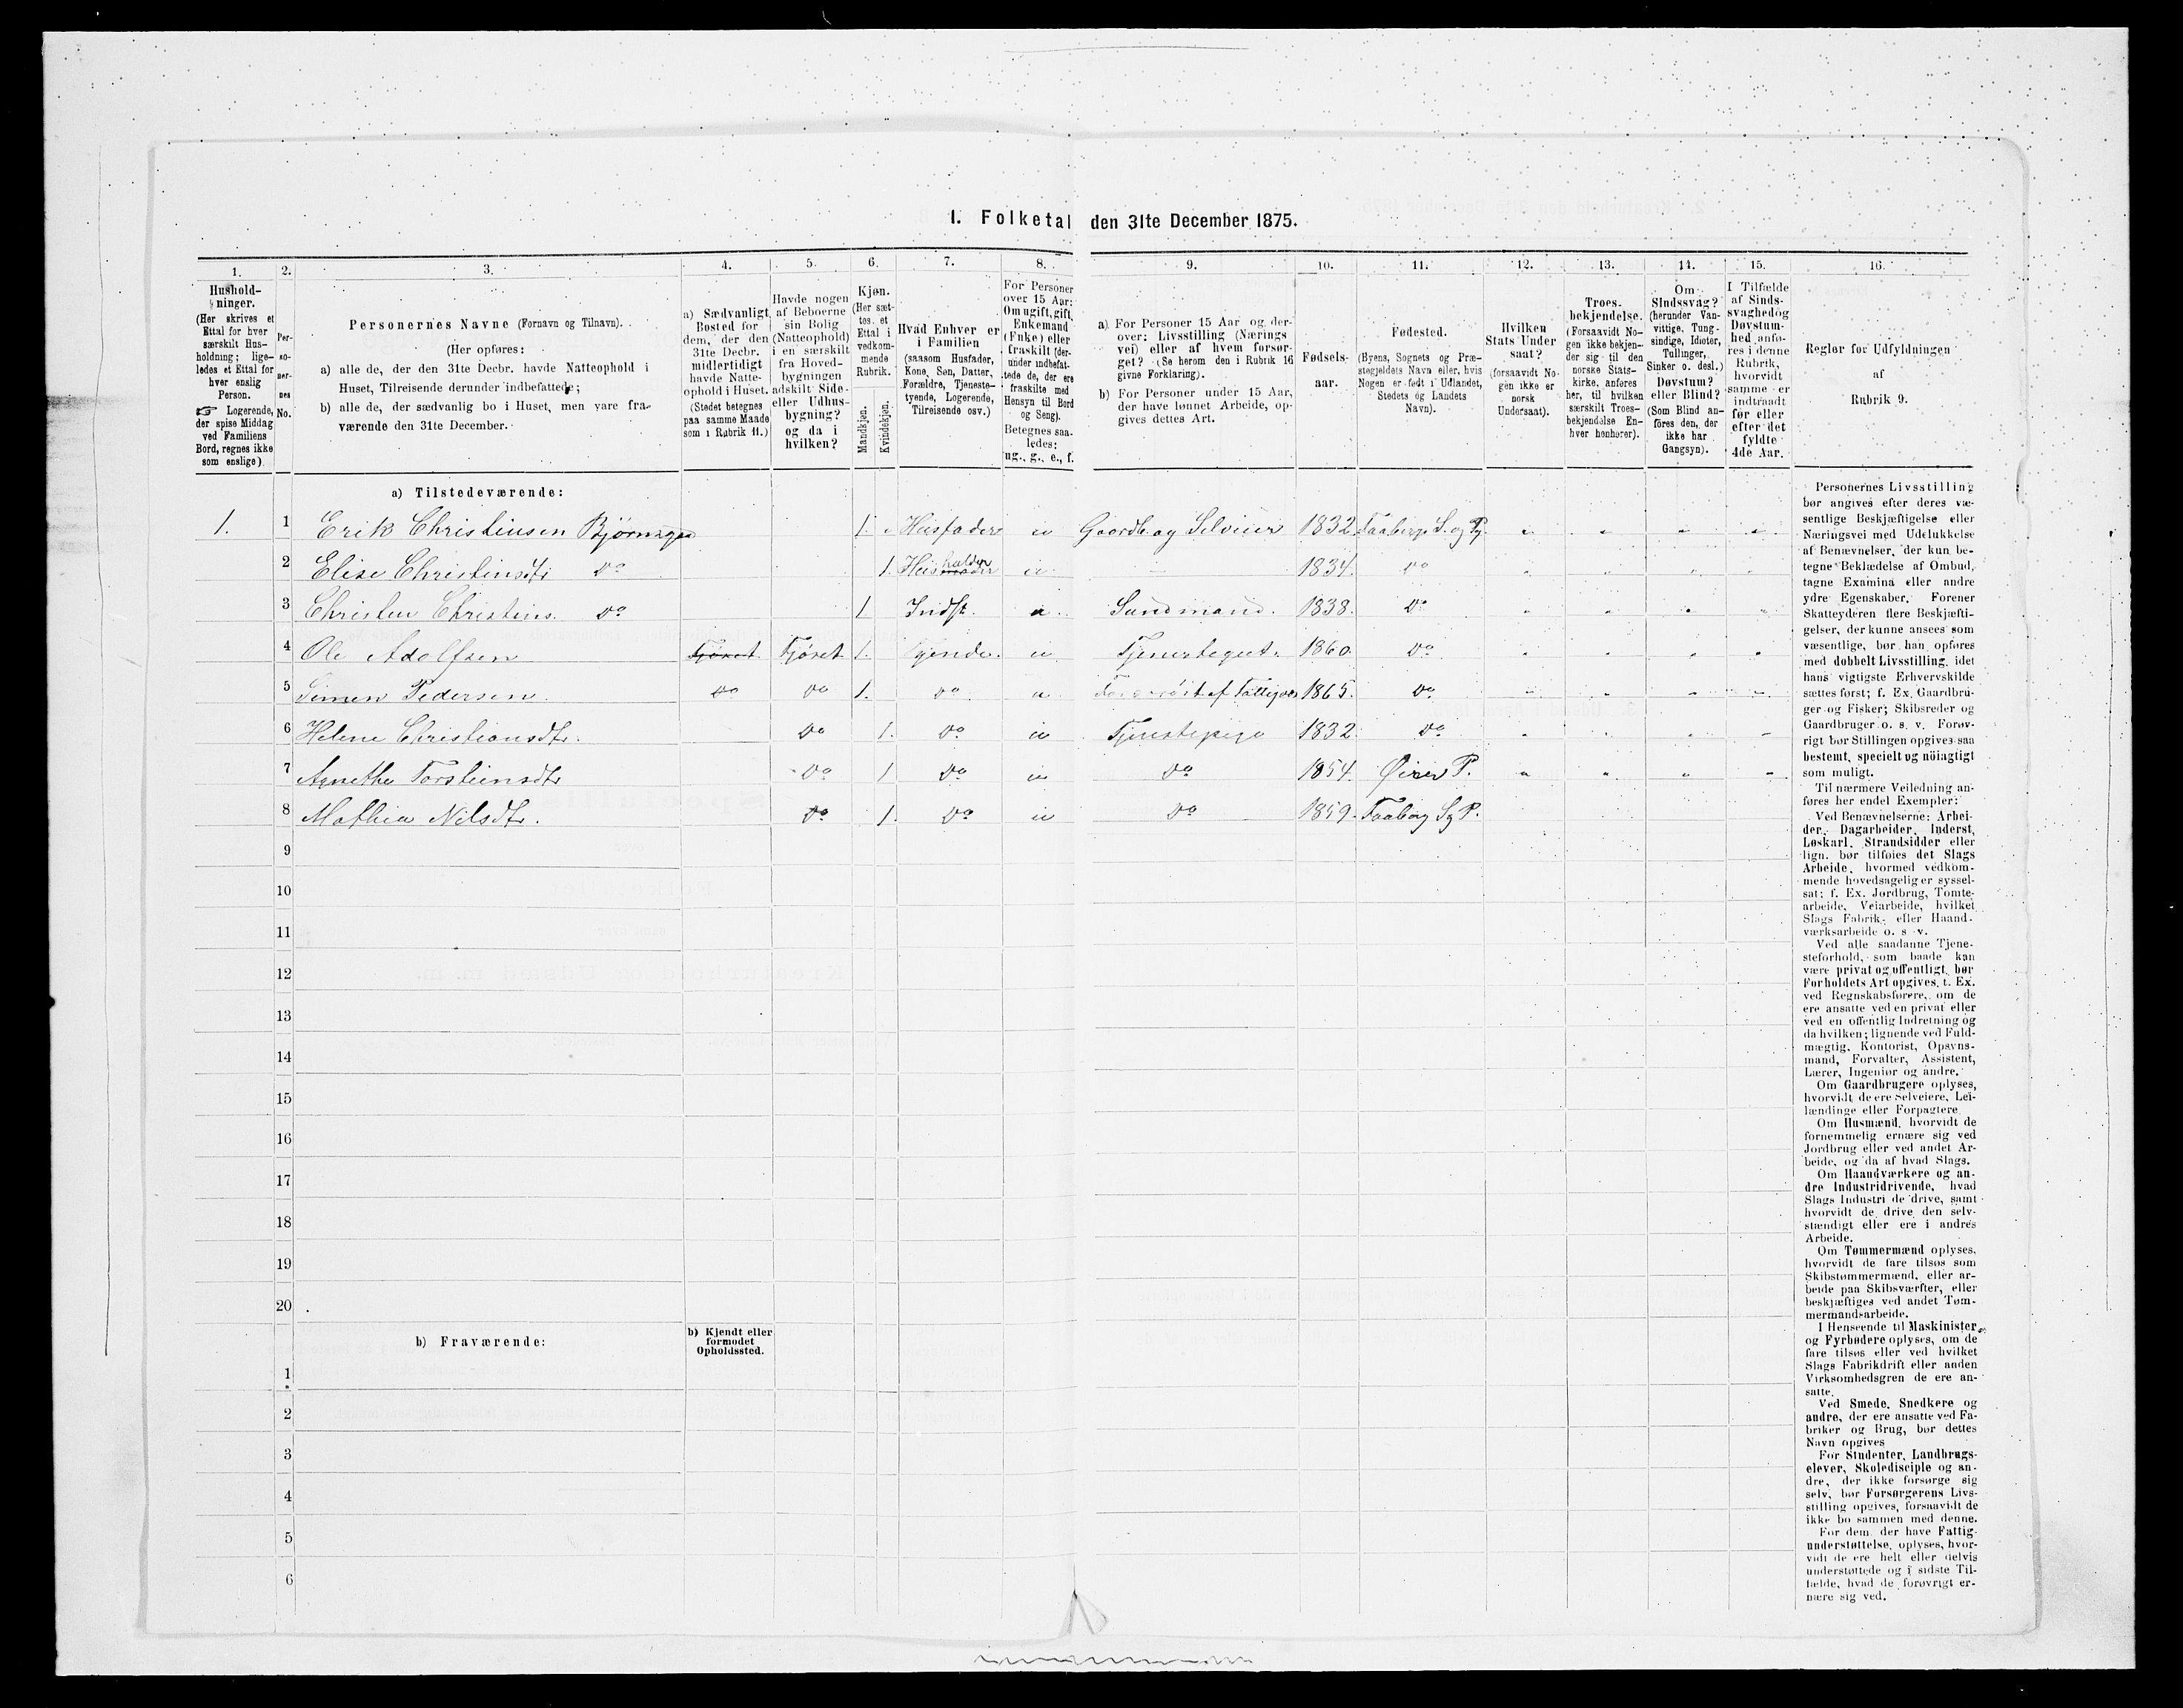 1. Folketal den 31te December 1875.
1. 2. 3. 4. 5. 6. 7. 8. 9. 10. 11. 12. 13. 14. 15. 16.
Hushold-
ninger.
(Her skrives et
Ettal for hver
særskilt Hus-
holdning; lige-
ledes et Ettal for
hver enslig
Person.
☞ Logerende,
der spise Middag
ved Familiens
Bord, regnes ikke
som enslige).
Per-
so-
ner-
nes
No.
Personernes Navne (Fornavn og Tilnavn).
(Her opføres:
a) alle de, der den 31te Decbr. havde Natteophold i
Huset, Tilreisende derunder indbefattede;
b) alle de, der sædvanlig bo i Huset, men vare fra-
værende den 31te December.
a) Sædvanligt
Bosted for
dem, der den
31te Decbr.
midlertidigt
havde Natte-
ophold i Huset.
(Stedet betegnes
paa samme Maade
som i Rubrik 11.)
Havde nogen
af Beboerne
sin Bolig
(Natteophold)
i en særskilt
fra Hoved-
bygningen
adskilt Side-
eller Udhus-
bygning?
og da i
hvilken?
Kjøn.
(Her sæt-
tes et
Ettal i
vedkom-
mende
Rubrik.
Mandkjøn.
Kvindekjøn.
Hvad Enhver er
i Familien
(saasom Husfader,
Kone, Søn, Datter,
Forældre, Tjeneste-
tyende, Logerende,
Tilreisende osv.)
For Personer
over 15 Aar:
Om ugift, gift,
Enkemand
(Enke) eller
fraskilt (der-
under indbefat-
tede de, der ere
fraskilte med
Hensyn til Bord
og Seng).
Betegnes saa-
ledes:
ug., g., e., f.
a) For Personer 15 Aar og der-
over: Livsstilling (Nærings
vei) eller af hvem forsør-
get? (Se herom den i Rubrik 16
givne Forklaring).
b) For Personer under 15 Aar,
der have lønnet Arbeide, op-
gives dettes Art.
Fødsels-
aar.
Fødested.
(Byens, Sognets og Præ-
stegjeldets Navn eller, hvis
Nogen er født i Udlandet,
Stedets og Landets
Navn).
Hvilken
Stats Under
saat?
(forsaavidt No-
gen ikke er
norsk
Undersaat).
Troes-
bekjendelse.
(Forsaavidt No-
gen ikke bekjen-
der sig til den
norske Stats-
kirke, anføres
her, til hvilken
særskilt Troes-
bekjendelse En-
hver henhører).
Om
Sindssvag?
(herunder Van-
vittige, Tung-
sindige, Idioter,
Tullinger,
Sinker o. desl.)
Døvstum?
eller Blind?
(Som Blind an-
føres den, der
ikke har
Gangsyn).
I Tilfælde
af Sinds-
svaghed og
Døvstum-
hed anfø-
res i denne
Rubrik,
hvorvidt
samme er
indtraadt
før eller
efter det
fyldte
4de Aar.
Regler for Udfyldningen
af
Rubrik 9.
a) Tilstedeværende:
1. 1 Erik Christiansen 1. Husfader u Gaardb og Selveier 1832 Faaberg S. og P.
2 Elise Christiansdtr Do 1. Husholder u 1834. Do
3 Christen Christens. Do 1 Indst. u Sandmand. 1838. Do
4 Ole Adolfsen Fjöset Fjöset 1. Tjende. u Tjenestegut. 1860 Do
5 Simen Pedersen. Do Do 1. Do u 1865. Do
6 Helene Christiansdtr. Do 1. Do u Tjenestepige 1832 Do
7 Agnethe Torstensdtr Do 1 Do u Do 1854. Øier P.
8 Mathia Nilsdtr. Do 1. Do u Do 1859. Faaberg S og P.
9
10
11
12
13
14
15
16
17
18
19
20
b) Fraværende:
b) Kjendt eller
formodet
Opholdssted.
1
2
3
4
5
6
Personernes Livsstilling
bør angives efter deres væ-
sentlige Beskjæftigelse eller
Næringsvei med Udelukkelse
af Benævnelser, der kun be-
tegne Beklædelse af Ombud,
tagne Examina eller andre
ydre Egenskaber. Forener
Skatteyderen flere Beskjæfti-
gelser, der kunne ansees som
væsentlige, bør han opføres
med dobbelt Livsstilling, idet
hans vigtigste Erhvervskilde
sættes først; f. Ex. Gaardbru-
ger og Fisker; Skibsreder og
Gaardbruger o. s. v. Forøv-
rigt bør Stillingen opgives saa
bestemt, specielt og nöiagtigt
som muligt.
Til nærmere Veiledning an-
føres her endel Exempler:
Ved Benævnelserne: Arbei-
der, Dagarbeider, Inderst,
Løskarl, Strandsidder eller
lign. bør tilføies det Slags
Arbeide, hvormed vedkom-
mende hovedsagelig er syssel-
sat; f. Ex. Jordbrug, Tomte-
arbeide, Veiarbeide, hvilket
Slags Fabrik- eller Haand-
værksarbeide o. s. v.
Ved alle saadanne Tjene-
steforhold, som baade kan
være privat og offentligt, bør
Forholdets Art opgives, t. Ex.
ved Regnskabsførere, om de
ere ansatte ved en privat eller
ved en offentlig Indretning og
da hvilken; lignende ved Fuld-
mægtig, Kontorist, Opsyns-
mand, Forvalter, Assistent,
Lærer, Ingeniør og andre.
Om Gaardbrugere oplyses,
hvorvidt de ere Selveiere, Lei-
lændinge eller Forpagtere.
Om Husmænd, hvorvidt de
fornemmelig ernære sig ved
Jordbrug eller ved andet Ar-
beide, og da af hvad Slags.
Om Haandværkere og an-
dre Industridrivende, hvad
Slags Industri de drive, samt
hvorvidt de drive den selv-
stændigt eller ere i andres
Arbeide.
Om Tømmermænd oplyses,
hvorvidt de fare tilsøs som
Skibstømmermænd, eller ar-
beide paa Skibsværfter, eller
beskjæftiges ved andet Tøm-
mermandsarbeide.
I Henseende til Maskinister
og Fyrbødere oplyses, om de
fare tilsøs eller ved hvilket
Slags Fabrikdrift eller anden
Virksomhedsgren de ere an-
satte.
Ved Smede, Snedkere og
andre, der ere ansatte ved Fa-
briker og Brug, bør dettes
Navn opgives
For Studenter, Landbrugs-
elever, Skoledisciple og an-
dre, der ikke forsørge sig
selv, bør Forsørgerens Livs-
stilling opgives, forsaavidt de
ikke bo sammen med denne.
For dem der have Fattig-
understøttelse, oplyses, hvor-
vidt de ere helt eller delvis
understøttede og i sidste Til-
fælde, hvad de forøvrigt er-
nære sig ved.